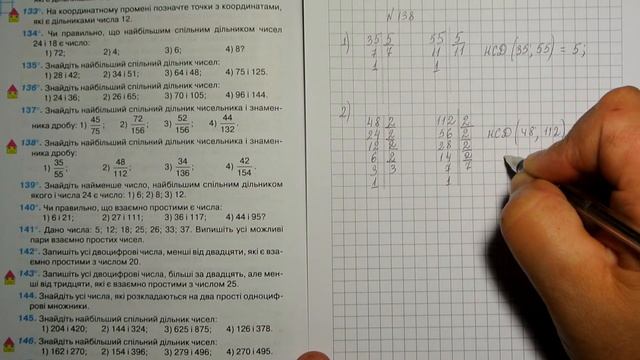 133°. На координатному промені позначте точки з координатами,
які є дільниками числа 12.
134°. Чи правильно, що найбільшим спільним дільником чисел
24 і 18 є число:
1) 72; 2) 4; 3) 6; 4) 8?
135°. Знайдіть найбільший спільний дільник чисел:
1) 28 і 42; 2) 34 і 51; 3) 64 і 48; 4) 75 і 125.
136°. Знайдіть найбільший спільний дільник чисел:
1) 24 і 36; 2) 26 і 65; 3) 70 і 105; 4) 96 і 144.
137°. Знайдіть найбільший спільний дільник чисельника і знамен-
ника дробу: 1) 45/75; 2) 72/156; 3) 52/156; 4) 44/132.
138°. Знайдіть найбільший спільний дільник чисельника і знамен-
ника дробу:
1) 35/55; 2) 48/112; 3) 34/136; 4) 42/154.
139°. Знайдіть найменше число, найбільшим спільним дільником
якого і числа 24 є число: 1) 6; 2) 8; 3) 12.
140°. Чи правильно, що взаємно простими є числа:
1) 6 і 21; 2) 27 і 111; 3) 36 і 117; 4) 44 і 95?
141°. Дано числа: 5; 12; 18; 25; 26; 33; 37. Випишіть усі можливі
пари взаємно простих чисел.
142°. Запишіть усі двоцифрові числа, менші від двадцяти, які є вза-
ємно простими з числом 20.
143°. Запишіть усі двоцифрові числа, більші за двадцять, але мен-
ші від тридцяти, які є взаємно простими з числом 25.
144. Знайдіть усі числа, які розкладаються на два прості одноциф-
рові множники.
145. Знайдіть найбільший спільний дільник чисел:
1) 204 і 420; 2) 144 і 324; 3) 625 і 875; 4) 126 і 378.
146. Знайдіть найбільший спільний дільник чисел:
1) 162 і 270; 2) 154 і 396; 3) 279 і 496; 4) 270 і 495.
№ 138
1) 35 | 5 55 | 5 НСД (35; 55) = 5;
7 | 7 11 | 11
1 1
2) 48 | 2 112 | 2 НСД (48, 112)
24 | 2 56 | 2
12 | 2 28 | 2
6 | 2 14 | 2
3 | 3 7 | 7
1 1